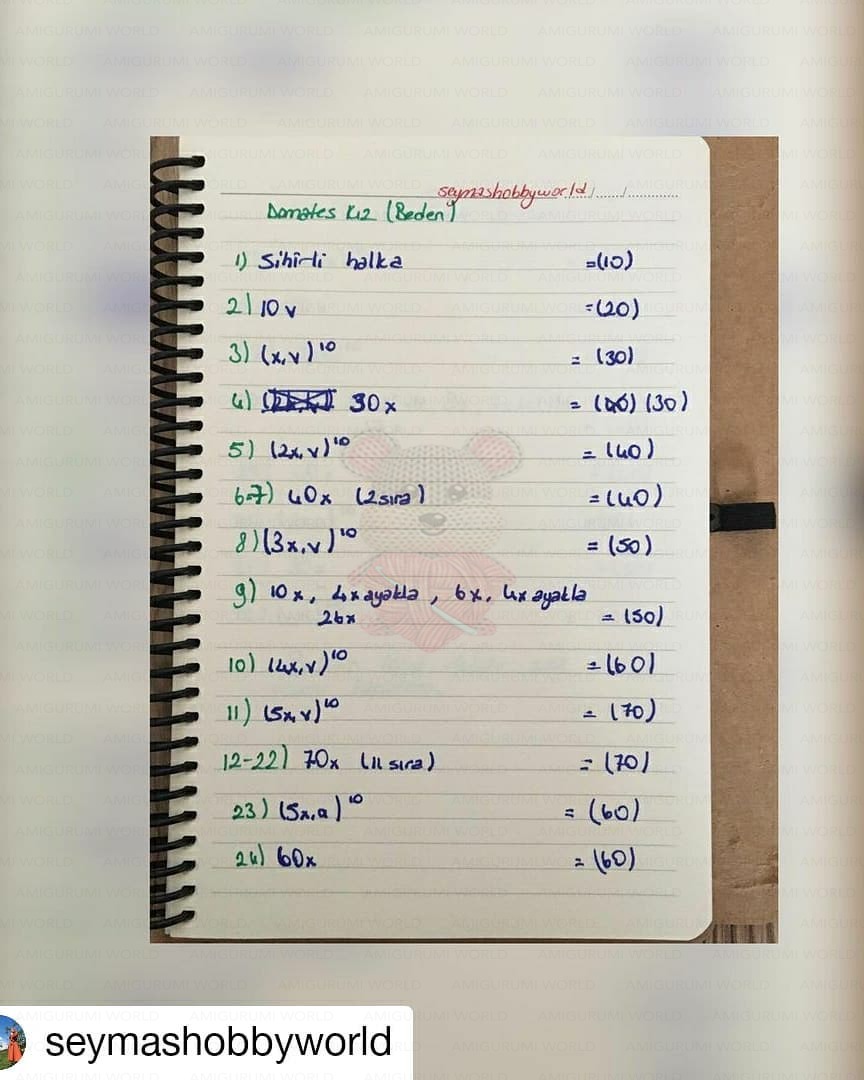 seymashobbyworld
Domates Kız (Beden)
1) Sihirli halka =(10)
2) 10v =(20)
3) (x,v)¹⁰ = (30)
4) 30x = (30)
5) (2x,v)¹⁰ = (40)
6-7) 40x (2 sıra) =(40)
8) (3x,v)¹⁰ = (50)
9) 10x, 4x ayakla, 6x, 4x ayakla
26x = (50)
10) (4x,v)¹⁰ =(60)
11) (5x,v)¹⁰ = (70)
12-22) 70x (11 sıra) = (70)
23) (5x,a)¹⁰ = (60)
24) 60x = (60)
AMIGURUMI WORLD
seymashobbyworld